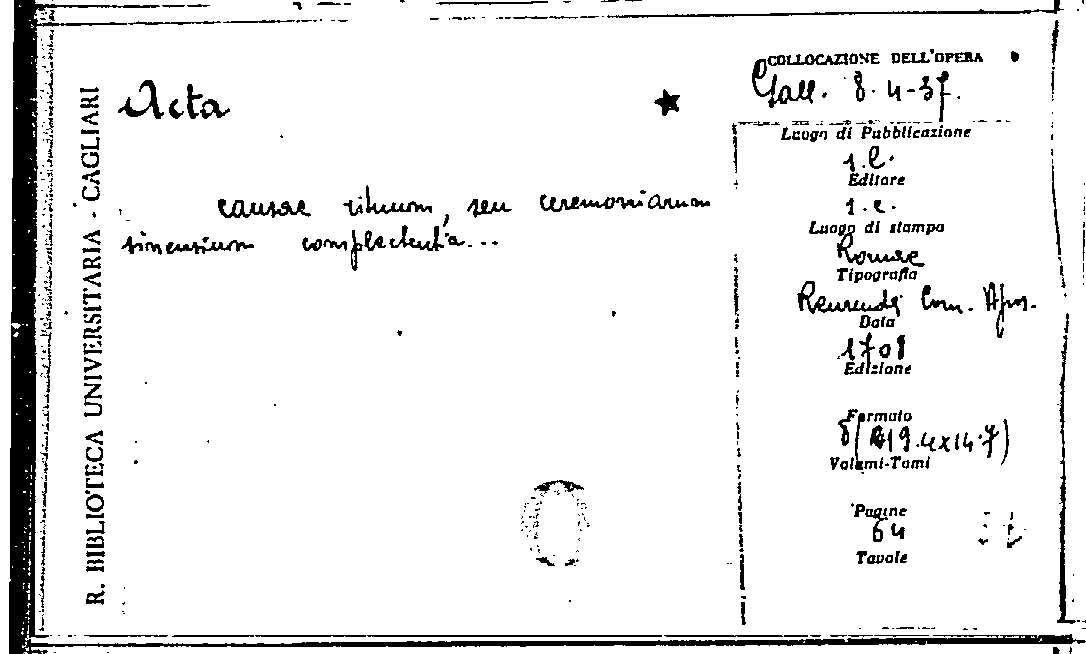 R. BIBLIOTECA UNIVERSITARIA - CAGLIARI
Acta
causae rituum, seu ceremoniarum
sinensium complectentia...
COLLOCAZIONE DELL'OPERA
Gall. 8. 4-37.
Luogo di Pubblicazione
s.l.
Editore
s.e.
Luogo di stampa
Romae
Tipografia
Com. Apos.
Data
1709
Edizione
Formato
8(19.4x14.7)
Volumi-Tomi
Pagine
64
Tavole